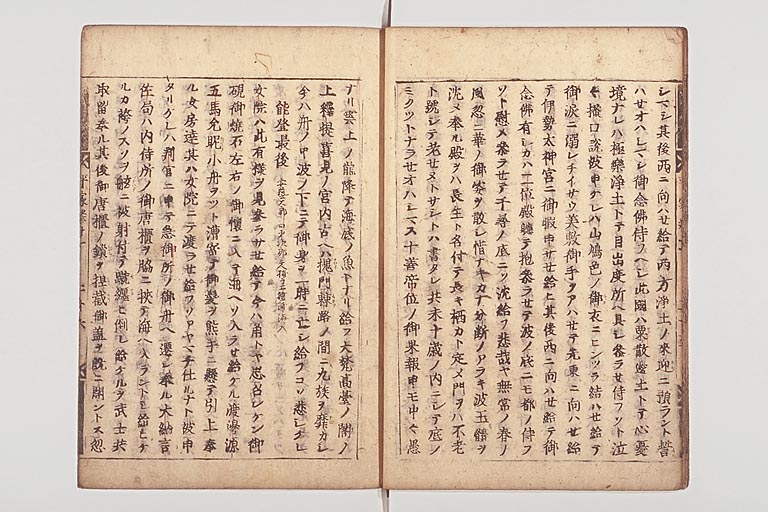 シマシ其後西ニ向ハセ給テ西方浄土ノ來迎ニ預ラント誓
ハセオハシマシ御念佛侍フヘシ此國ハ粟散邊土トテ心憂
境ナレハ極樂浄土トテ目出度所ヘ具シ参ラセ侍フソト泣
々掻口説被申ケレハ山鳩色ノ御衣ニヒンツラ結ハセ給テ
御涙ニ溺レチイサウ美敷御手ヲアハせテ先東ニ向ハセ給
テ伊勢太神宮ニ御暇申サセ給ヒ其後西ニ向ハセ給テ御
念佛有シカハ二位殿軈テ抱参ラセテ波ノ底ニモ都ノ侍フ
ソト慰メ参ラセテ千尋ノ底ニソ沈給フ悲哉ヤ無常ノ春ノ
風忽ニ華ノ御姿ヲ散シ惜イカナ分断ノアラキ波玉體ヲ
沈メ奉ル殿ヲハ長生ト名付テ長キ栖カト定メ門ヲハ不老
ト號シテ老セヌトサシトハ書タレ共未十歳ノ内ニシテ底ノ
ミクツトナラセオハシマス十善帝位ノ御果報申モ中々愚
ナリ雲上ノ龍降テ海底ノ魚ト成給フ大梵高臺ノ閣ノ
上釋提喜見ノ宮内古ヘハ槐門棘路ノ間ニ九族ヲ靡カシ
今ハ舟ノ中波ノ下ニテ御身ヲ一時ニ亡シ給フコソ悲シケレ
能登最後
女院ハ此有様ヲ見参ラサセ給テ今ハ角トヤ思召レケン御
硯御焼石左右ノ御懐ニ入テ海ヘソ入ラせ給ケル渡邊源
五馬允眤小舟ヲツト漕寄テ御髪ヲ熊手ニ懸テ引上奉
ル女房達其ハ女院ニテ渡ラせ給フソアヤマチ仕ルナト被申
タリケレハ判官ニ申テ急御所ノ御舟ヘ遷シ奉ル大納言
佐局ハ内侍所ノ御唐櫃ヲ脇ニ挾テ海ヘ入ラントシ給ヒケ
ルカ袴ノスソヲ舷ニ被射付テ蹴纒ヒ倒レ給ケルヲ武士共
取留奉ル其後御唐櫃ノ鎖ヲ捏截御蓋ヲ既ニ開ントス忽